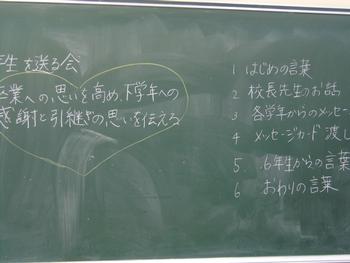 年生を送る会
卒業への思いを高め、下学年への
感謝と引継ぎの思いを伝える
1 はじめの言葉
2 校長先生のお話
3 各学年からのメッセー
4 メッセージカード渡し
5 6年生からの言葉
6 おわりの言葉